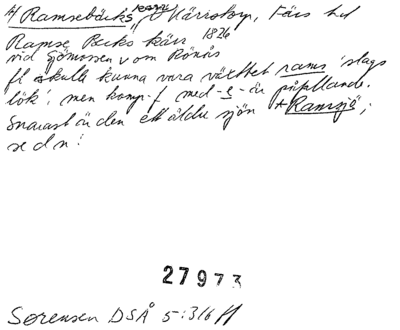 A/ Ramsebäcks kärr, Kärrstorp, Färs hd
Ramse Becks kärr 1826
vid sjömossen v om Rönås
fl skulle kunna vara växtbet rams 'slags
lök', men komp.-f med -e- är påfallande.
Snarast är den ett äldre sjön * Ramsjö;
se d n!
27973
Sørensen DSÅ 5:316 ff